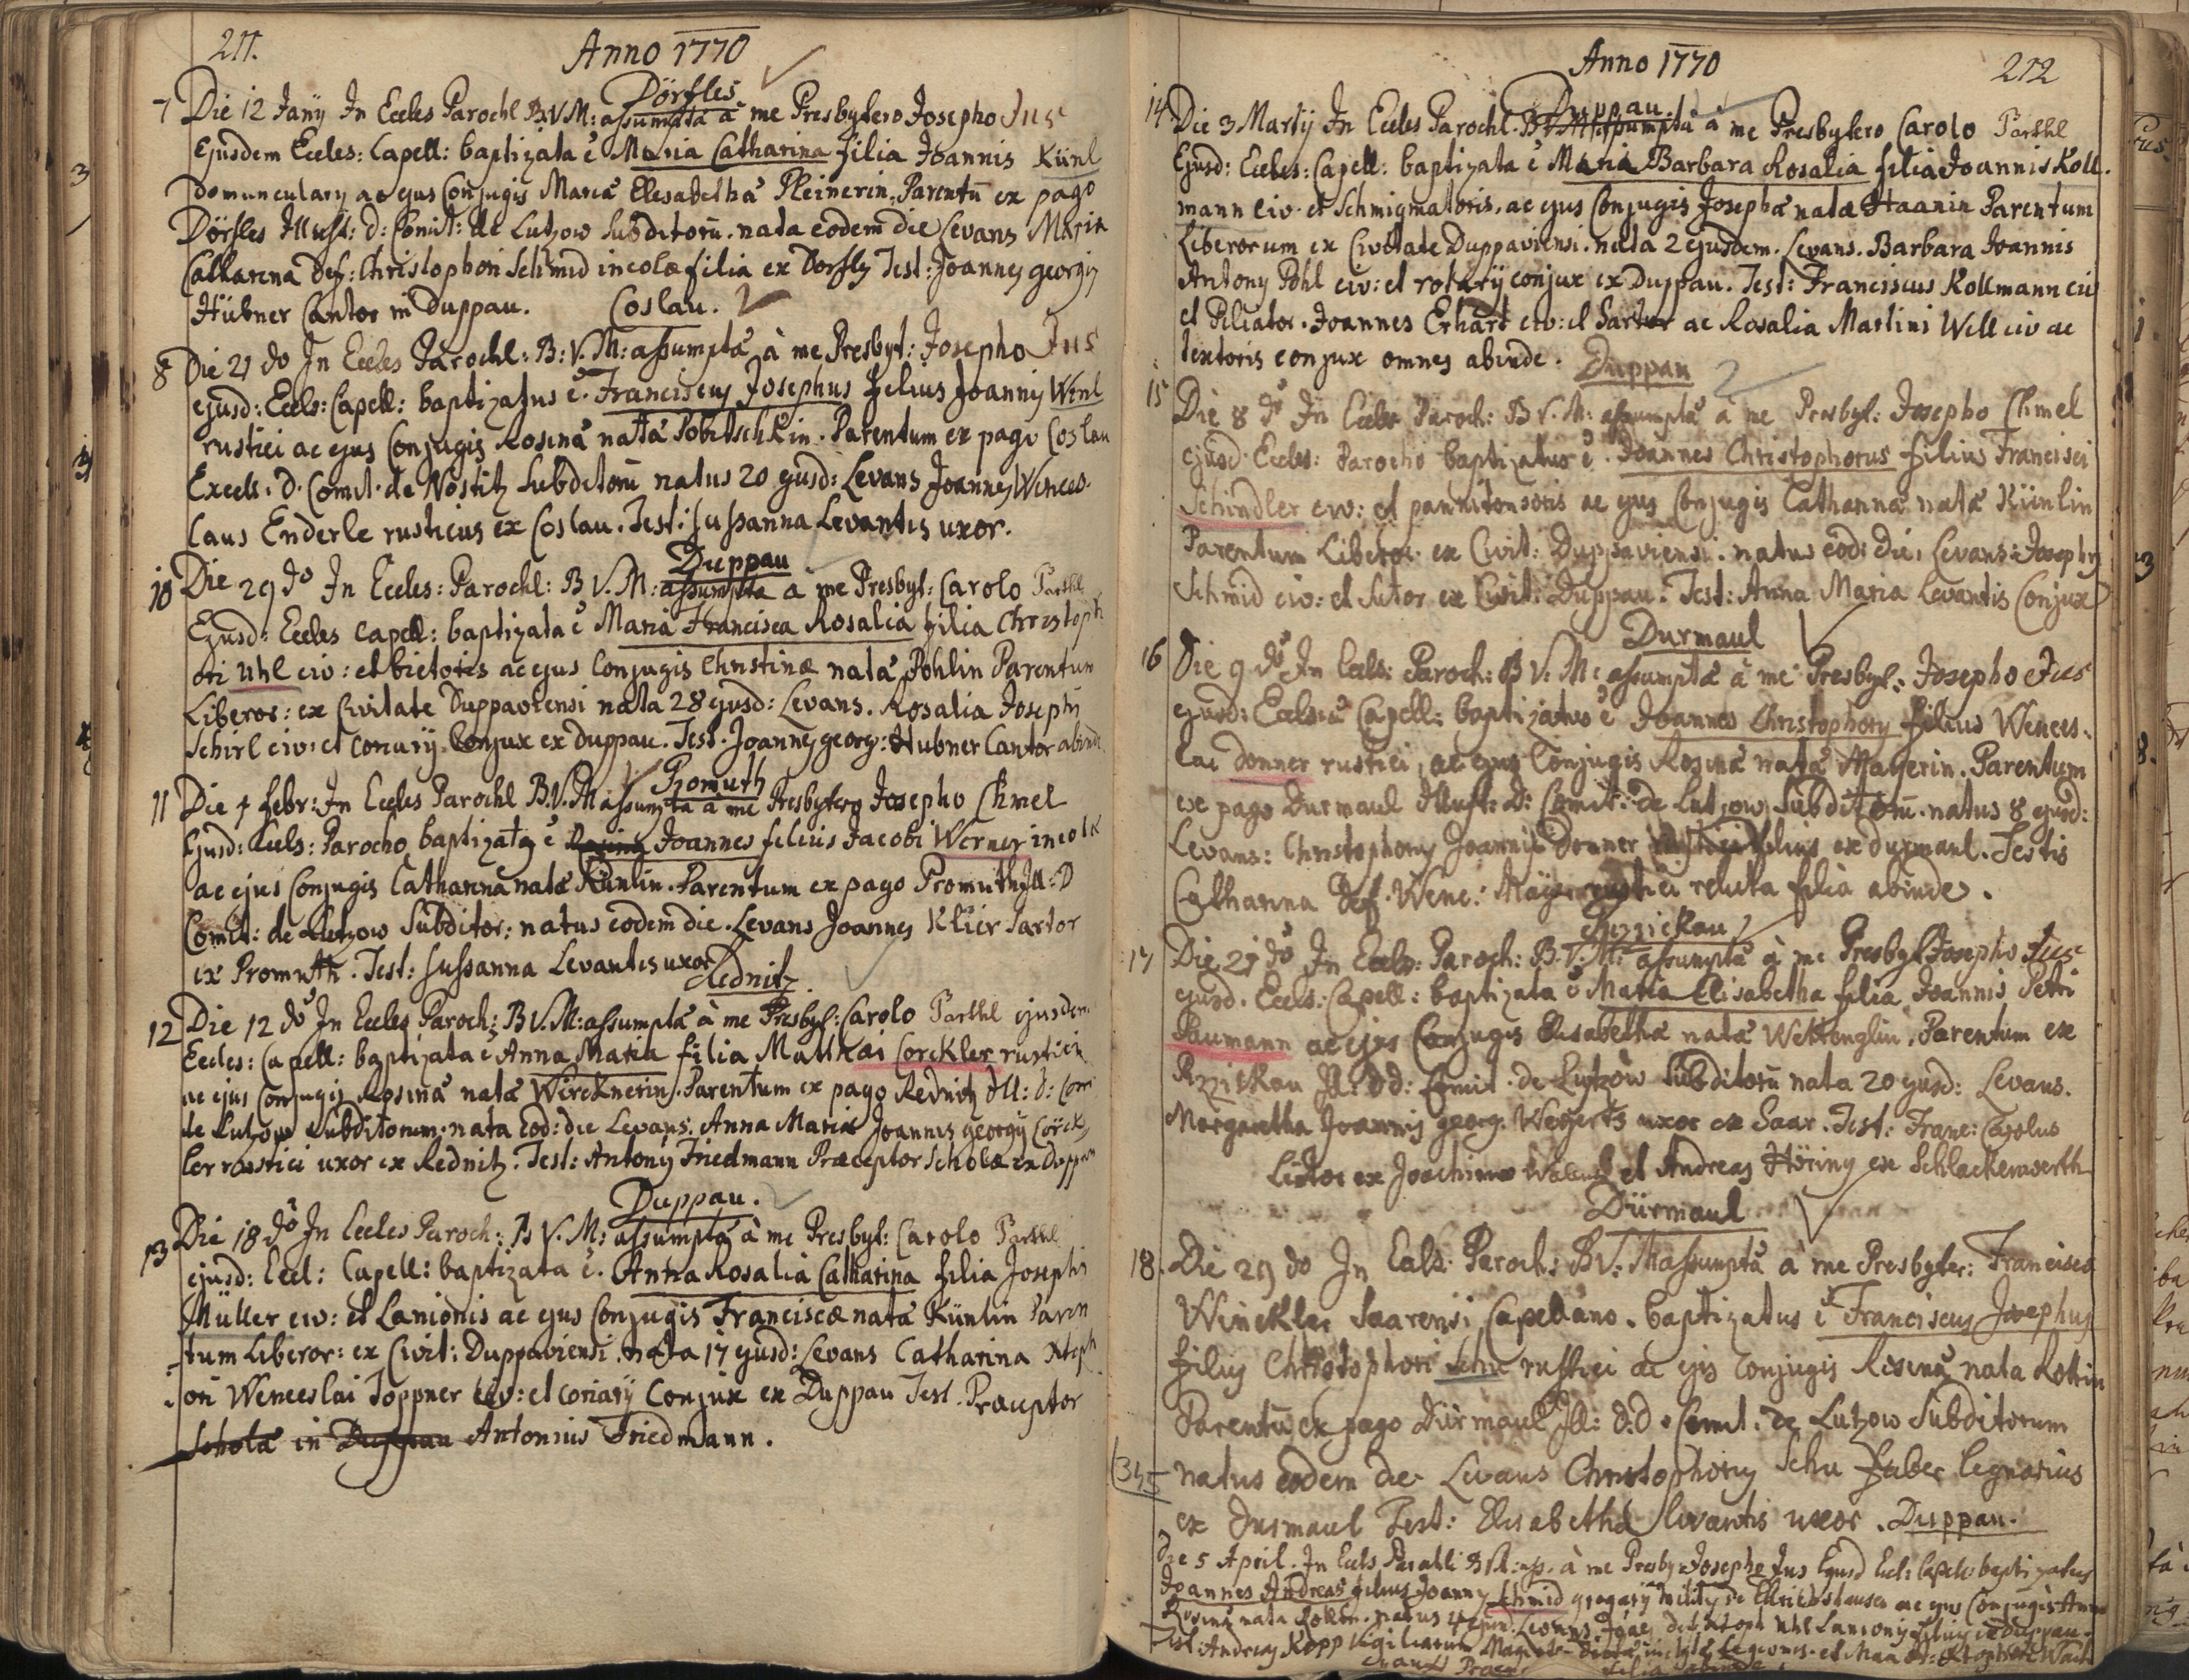 211.
Anno 1770
Dörfles
7 Die 12 Jany In Eccles Parochl B.V.M: assumptâ â me Presbytero Josepho Jus
Ejusdem Eccles: Capell: baptizata ẽ Maria Catharina filia Joannis Künl
domuncularij ac ejus Conjugis Mariâ Elesabethâ Pleinerin. Parentũ ex pago
Dörfles Illust: d: Comit: de Lutzow subditorũ. nata eodem die Levans Maria
Catharena Def: Christophori Schmid incolæ filia ex Dorfles Test: Joannes georgiy
Hübner Cantor in Duppau.
Coslau.
8 Die 21 do In Eccles Parochl: B: V. M: assumptâ à me Presbyt: Josepho Jus
ejusd: Eccls: Capell: baptizatus ẽ. Franciscus Josephus filius Joannis Wenl
rustici ac ejus Conjugis Rosinâ natâ Pobitschkin. Parentum ex pago Coslau
Excell. D. Comit. de Nostitz subditorũ natus 20 ejusd: Levans Joannes Wences.
laus Enderle rusticus ex Coslau. Test: Sussanna Levantis uxor.
Duppau
10 Die 29 do In Eccles: Parochl: B V. M: assumpta a me Presbyt: Carolo Parthl
Ejusd: Eccles Capell: baptizata ẽ Maria Francisca Rosalia filia Christoph
ori Uhl civ: et bietoris ac ejus Conjugis Christinæ natâ Pohlin Parentum
Liberor: ex Civitate Duppaviensi nata 28 ejusd: Levans. Rosalia Josephi
Schirl civ: et coriarij Conjux ex duppau. Test. Joannes georg: Hubner Cantor abinde
Promuth
11 Die 4 febr: In Eccles Parochl B.V.M assumpta â me Presbytero Josepho Chmel
Ejusd: Eccls: Parocho baptizatus ẽ Joannes filius Jacobi Werner incolæ
ac ejus Conjugis Catharina natâ Künlin. Parentum ex pago Promuth Ill: D
Comit: de Lutzow Subditor: natus eodem die. Levans Joannes Klier Sartor
ex Promuth. Test: Sussanna Levantis uxor
Rednitz
12 Die 12 do In Eccles Paroch: B V. M: assumptâ à me Presbyt: Carolo Parthl ejusdem
Eccles: Capell: baptizata ẽ Anna Maria filia Matthæi Corckler rustici
ac ejus Conjugis Rosina natâ Wircknerin. Parentum ex pago Rednitz Ill: d: Com
de Lutzow Subditorum. nata Eod: die Levans. Anna Maria Joannis georgij Corck,
ler rustici uxor ex Rednitz. Test: Antony Friedmann Præceptor Scholæ ex Duppau
Duppau.
13 Die 18 do In Eccles Paroch: B V. M: assumptâ à me Presbyt: Carolo Parthl
ejusd: Eccl: Capell: baptizata ẽ. Anna Rosalia Catharina filia Josephi
Müller civ: et Lanionis ac ejus Conjugis Franciscæ natâ Künlin Paren
tum Liberor: ex Civit: Duppaviensi. nata 17 ejusd: Levans Catharina Xtoph
ori Wenceslai Toppner civ: et coriarij Conjux ex Duppau Test. Præceptor
Scholâ in Duppau Antonius Friedmann.
Anno 1770
212
Duppau
14 Die 3 Martij In Eccles Parochl. B V M assumptâ à me Presbytero Carolo Parthl
Ejusd: Eccles: Capell: baptizata ẽ Maria Barbara Rosalia filia Joannis Koll.
mann civ. et Schmigmatoris. ac ejus Conjugis Josephâ natâ Haanin Parentum
Liberorum ex Civitate Duppaviensi. nata 2 ejusdem. Levans. Barbara Joannis
Antony Pohl civ: et rotarij conjux ex Duppau. Test: Franciscus Kollmann civ
et Pileator. Joannes Erhart civ: et Sartor ac Rosalia Martini Well civ ac
textoris conjux omnes abinde.
Duppau
15 Die 8 do In Eccles Paroch: B V. M: assumptâ â me Presbyt: Josepho Chmel
ejusd. Eccles: Parocho baptizatus ẽ. Joannes Christophorus filius Francisci
Schindler civ: et pannitonsoris ac ejus Conjugis Catharinâ natâ Künlin
Parentum Liberor. ex Civit: Duppaviensi. natus eod: die, Levans: Josephus
Schmid civ: et Sutor ex Civit: Duppau. Test: Anna Maria Levantis Conjux
Durmaul
16 Die 9 do In Eccls: Paroch: B V: M: assumptâ â me Presbyt: Josepho Jus
ejusd: Ecclsiâ Capell: baptizatus ẽ Joannes Christophory filius Wences.
lai donner rustici, ac ejus Conjugis Rosinâ natâ Mayerin. Parentum
ex pago Durmaul Illust: D: Comit: de Lutzow Subditorũ. natus 8 ejusd:
Levans: Christophorus Joannis Donner filius ex durmaul. Testis
Catharina Def. Wenc: relicta filia abinde.
Rzzickau
17 Die 21 do In Eccls: Paroch: B. V. M: assumptâ à me Presbyt Josepho Jus
ejusd. Eccls: Capell: baptizata ẽ Maria Elisabetha filia Joannis Petri
Baumann ac ejus Conjugis Elisabethâ natâ Wettenglin. Parentum ex
Rzzickau Ill: d d: Comit. de Lutzow Subditorũ nata 20 ejusd: Levans.
Margaretha Joannis georg: Wegerts uxor ex Saar. Test: Franc: Carolus
Lictor ex Joachims et Andreas Höring ex Schlackenwerth
Dürmaul
18. Die 29 do In Ecls: Paroch: B V: M assumptâ â me Presbyter: Francisco
Winckler Saarensi Capellano. baptizatus ẽ Franciscus Josephus
filius Christophori Schu rustici ac ejs Conjugis Rosinâ nata Rottin
Parentũ ex pago Dürmaul Ill: d: d. Comit. de Lutzow Subditorum
natus eodem die Levans Christophorus Schu Faber lignarius
345
ex Durmaul Test: Elisabetha levantis uxor. Duppau.
Die 5 April. In Eccls B V M: ass. à me Presby: Josepho Jus Ejusd Ecl: Capell: baptizatus
Joannes Andreas filius Joannis Schmid gregarij militis de Ellrichshausen ac ejus Conjugis Anna
Rosinâ nata natus 4 Levans Uhl Lanionis filius ex Duppau.
Test: Andreas Kopp Legionis. et